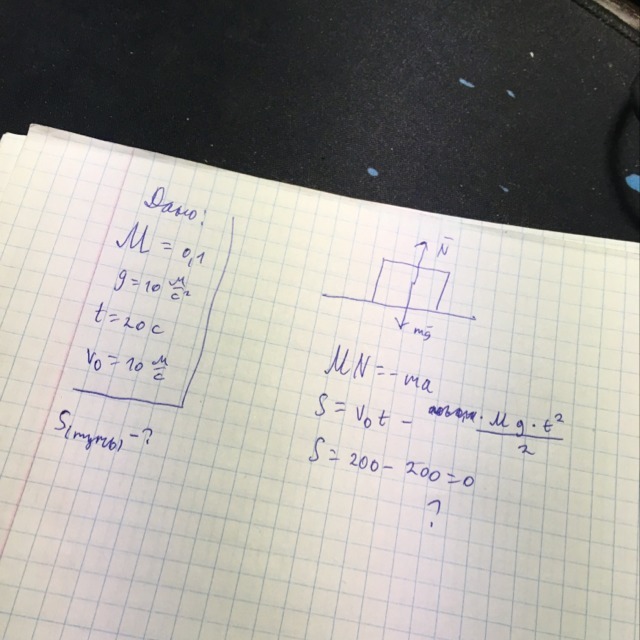 Дано:
M = 0,1
g = 10 м/с²
t = 20 с
V₀ = 10 м/с
S(путь) - ?
N̄
mḡ
MN = - ma
S = V₀t - · Mg · t² / 2
S = 200 - 200 = 0
?